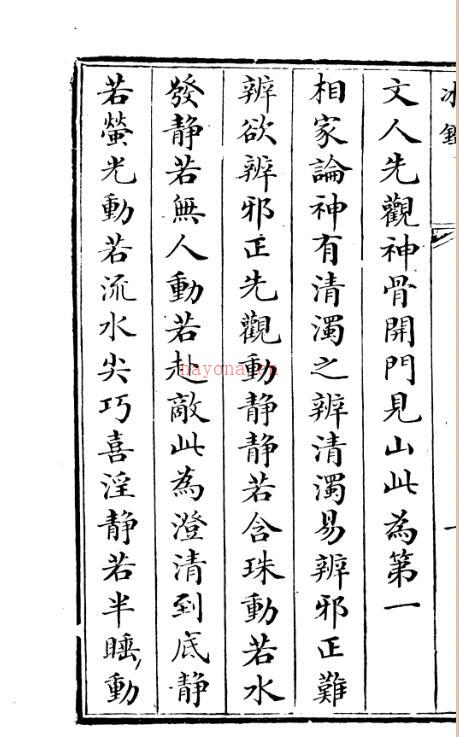 冰鑑
一
文人先觀神骨開門見山此為第一
相家論神有清濁之辨清濁易辨邪正難
辨欲辨邪正先觀動静静若含珠動若水
發静若無人動若赴敵此為澄清到底静
若螢光動若流水尖巧喜淫静若半睡動
nayona.cn